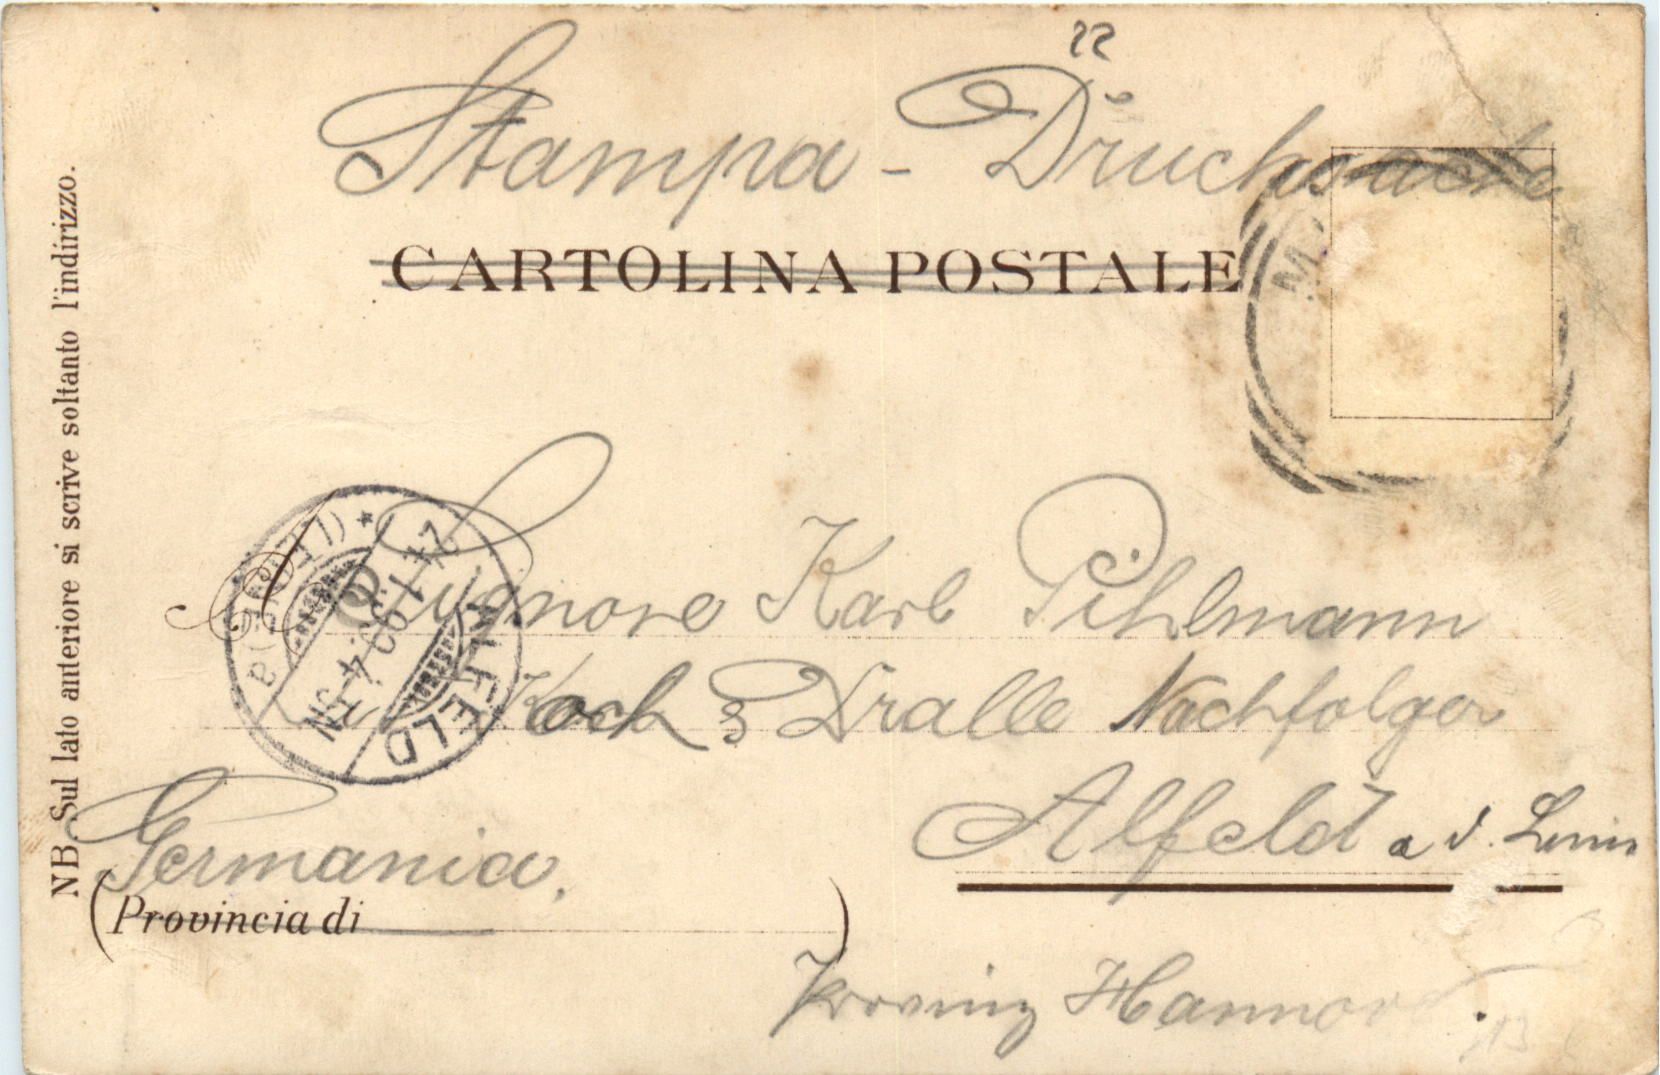 22
Stampa - Drucksache
CARTOLINA POSTALE
NB. Sul lato anteriore si scrive soltanto l'indirizzo.
Signore Karl Pihlmann
Koch & Dralle Nachfolger
Alfeld a d. Leine
Germania.
(Provincia di )
Provinz Hannover.
ALFELD
(LEINE)
24 1 03. 4-5N